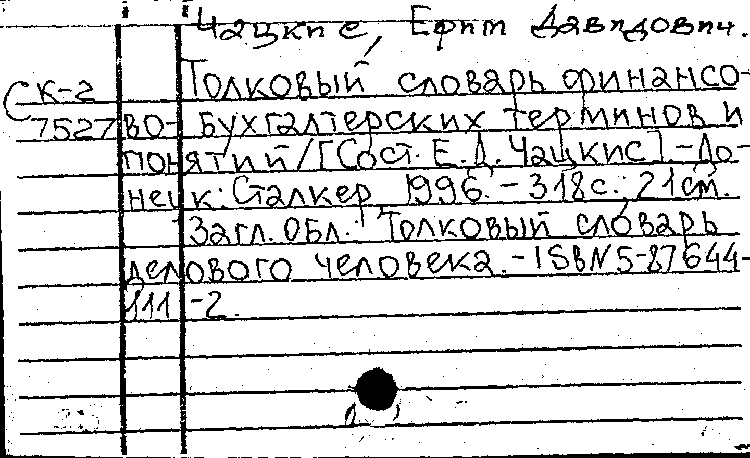 Чацкис, Ефим Давидович.
СК-2 Толковый словарь финансо-
7527 во-бухгалтерских терминов и
понятий/[Сост. Е.Д. Чацкис].-До-
нецк: Сталкер, 1996. - 318с.; 21см.
Загл. обл.: Толковый словарь
делового человека. - ISBN 5-87644-
111-2.